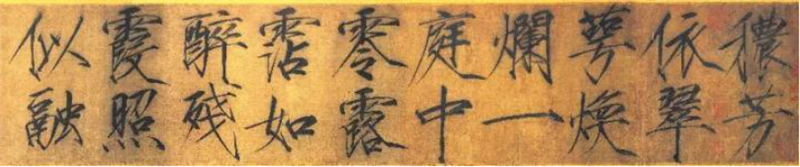 穠芳
依翠
萼煥
爛一
庭中
零露
霑如
醉殘
霞照
似融